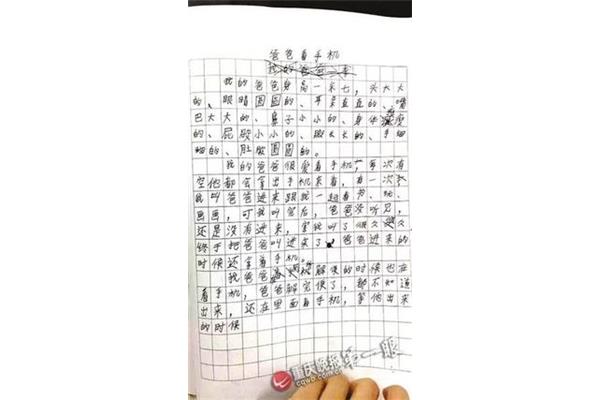 爸爸看手机
我的爸爸身高一米七，头大大
的、眼睛圆圆的、耳朵直直的、嘴
巴大大的、鼻子小小的、身体瘦瘦
的、屁股小小的、腿长长的、手细
细的、肚脐圆圆的。
我的爸爸很爱看手机，每次有
空他都会拿出手机来看，有一次
我叫爸爸进来跟我一起看书、玩、
画画，可我叫完后，爸爸没听见，
还是没有进来，当我叫了很久很久
终于把爸爸叫进来了，爸爸进来的
时候还拿着手机。
我爸爸解便的时候也在
看手机，爸爸解完便了，都不知道
出来，还在里面看手机，等他出来
的时候
重庆晚报 第一眼